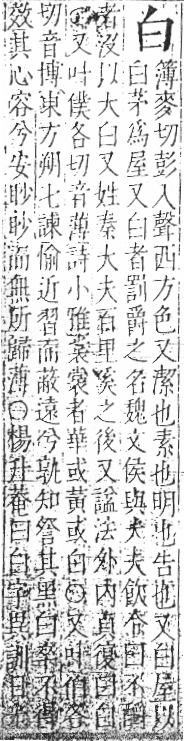 白 簿麥切彭入聲西方色又潔也素也明也告也又白屋以
白茅爲屋又白者罰爵之名魏文侯與大夫飲令曰不釂
者浮以大白又姓秦大夫百里奚之後又諡法外內貞復曰白
又叶僕各切音薄詩小雅裳裳者華或黃或白○又叶伯各
切音博東方朔七諫偷近習而蔽遠兮孰知察其黑白卒不得
效其心容兮安眇眇而無所歸薄○楊升菴曰白字異訓日光